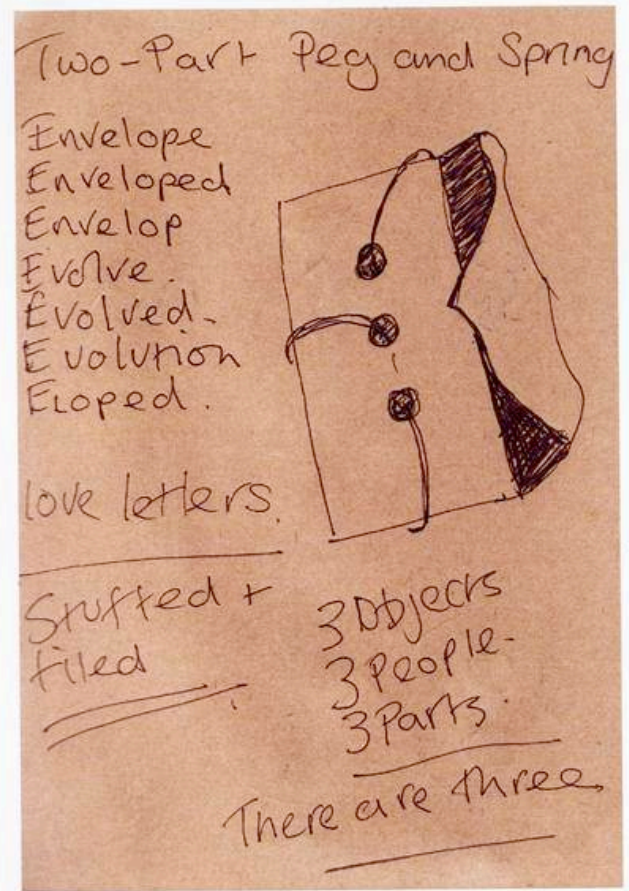 Two-Part Peg and Spring
Envelope
Enveloped
Envelop
Evolve.
Evolved-
Evolution
Eloped.
love letters.
Stuffed +
filed
3 Objects
3 People-
3 Parts.
There are three